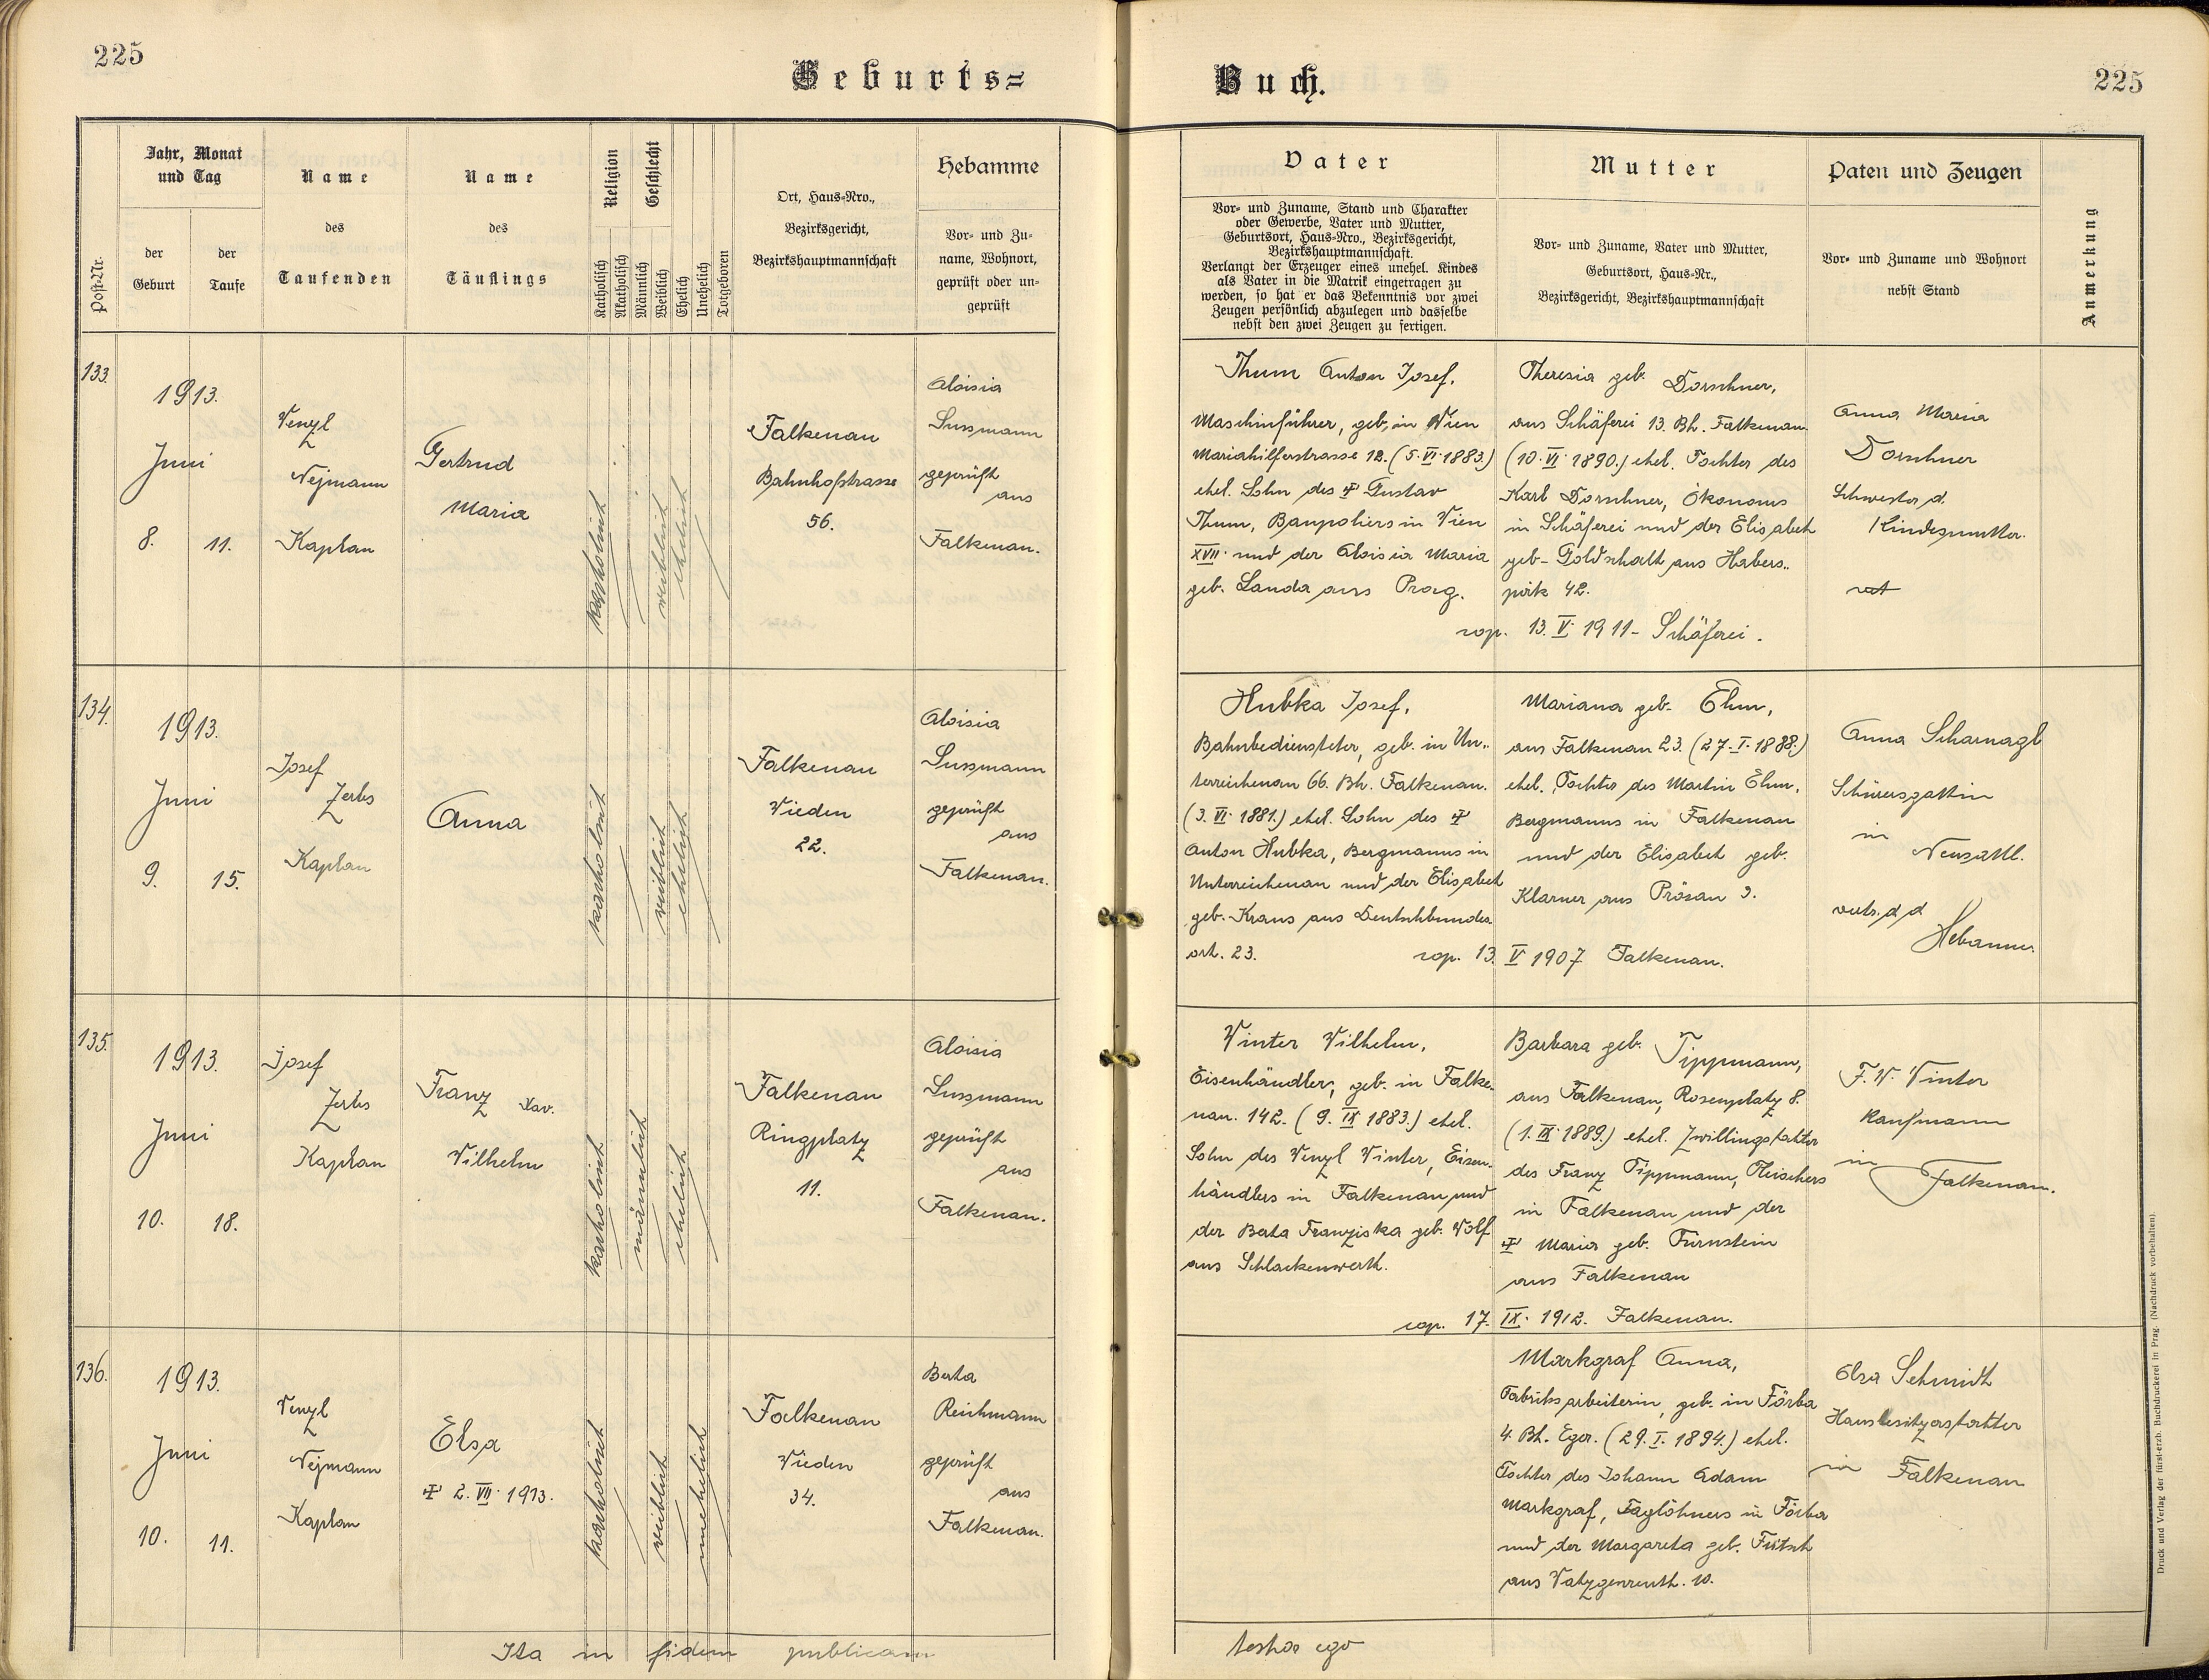 225
Geburts=
Buch.
225
Post-Nr.
Jahr, Monat
und Tag
der
Geburt
der
Taufe
Name
des
Taufenden
Name
des
Täuflings
Religion
Katholisch
Akatholisch
Geschlecht
Männlich
Weiblich
Ehelich
Unehelich
Totgeboren
Ort, Haus-Nro.,
Bezirksgericht,
Bezirkshauptmannschaft
Hebamme
Vor- und Zu-
name, Wohnort,
geprüft oder un-
geprüft
Vater
Vor- und Zuname, Stand und Charakter
oder Gewerbe, Vater und Mutter,
Geburtsort, Haus-Nro., Bezirksgericht,
Bezirkshauptmannschaft.
Verlangt der Erzeuger eines unehel. Kindes
als Vater in die Matrik eingetragen zu
werden, so hat er das Bekenntnis vor zwei
Zeugen persönlich abzulegen und dasselbe
nebst den zwei Zeugen zu fertigen.
Mutter
Vor- und Zuname, Vater und Mutter,
Geburtsort, Haus-Nr.,
Bezirksgericht, Bezirkshauptmannschaft
Paten und Zeugen
Vor- und Zuname und Wohnort
nebst Stand
Anmerkung
133.
1913.
Juni
8. 11.
Wenzl
Nejmann
Kaplan
Gertrud
Maria
katholisch
weiblich
ehelich
Falkenau
Bahnhofstrasse
56.
Aloisia
Sussmann
geprüft
aus
Falkenau.
Thum Anton Josef,
Maschinführer, geb. in Wien
Mariahilferstrasse 12. (5. VI. 1883.)
ehel. Sohn des ☩ Gustav
Thum, Baupoliers in Wien
XVII. und der Aloisia Maria
geb. Landa aus Prag.
Theresia geb. Dorschner,
aus Schäferei 13. Bh. Falkenau
(10. VI. 1890.) ehel. Tochter des
Karl Dorschner, Ökonoms
in Schäferei und der Elisabeth
geb. Goldschalt aus Habers-
pirk 42.
cop. 13. V. 1911 - Schäferei.
Anna Maria
Dorschner
Schwester d.
Kindesmutter.
134.
1913.
Juni
9. 15.
Josef
Zerbs
Kaplan
Anna
katholisch
weiblich
ehelich
Falkenau
Wieden
22.
Aloisia
Sussmann
geprüft
aus
Falkenau.
Hubka Josef,
Bahnbediensteter, geb. in Un-
terreichenau 66. Bh. Falkenau.
(3. VI. 1881.) ehel. Sohn des ☩
Anton Hubka, Bergmanns in
Unterreichenau und der Elisabet
geb. Kraus aus Deutschbundes-
ort. 23.
Mariana geb. Ehm,
aus Falkenau 23. (27. I. 1888.)
ehel. Tochter des Martin Ehm,
Bergmanns in Falkenau
und der Elisabet geb.
Klarner aus Prösau 3.
cop. 13. V 1907 Falkenau.
Anna Scharnagl
Schürersgattin
in
Neusattl.
Hebamme
135.
1913.
Juni
10. 18.
Josef
Zerbs
Kaplan
Franz Xav.
Wilhelm
katholisch
männlich
ehelich
Falkenau
Ringplatz
11.
Aloisia
Sussmann
geprüft
aus
Falkenau.
Winter Wilhelm,
Eisenhändler, geb. in Falke-
nau. 142. (9. IX 1883.) ehel.
Sohn des Wenzl Winter, Eisen-
händlers in Falkenau und
der Berta Franziska geb. Wolf
aus Schlackenwerth.
Barbara geb. Tippmann,
aus Falkenau, Rosenplatz 8.
(1. IX. 1889.) ehel. Zwillingstochter
des Franz Tippmann, Fleischers
in Falkenau und der
☩ Maria geb. Fürnstein
aus Falkenau
cop. 17. IX. 1912. Falkenau.
F. W. Winter
Kaufmann
in
Falkenau.
136.
1913.
Juni
10. 11.
Wenzl
Nejmann
Kaplan
Elsa
☩ 2. VII. 1913.
katholisch
weiblich
unehelich
Falkenau
Wieden
34.
Berta
Reichmann
geprüft
aus
Falkenau.
Markgraf Anna,
Fabriksarbeiterin, geb. in Förba
4 Bh. Eger. (29. I. 1894.) ehel.
Tochter des Johann Adam
Markgraf, Taglöhners in Förba
und der Margareta geb. Fritsch
aus Watzgenreuth. 10.
Elsa Schmidt
Hausbesitzerstochter
in Falkenau
Ita in fidem publicam
testor ego
Druck und Verlag der fürst-erzb. Buchdruckerei in Prag. (Nachdruck vorbehalten).